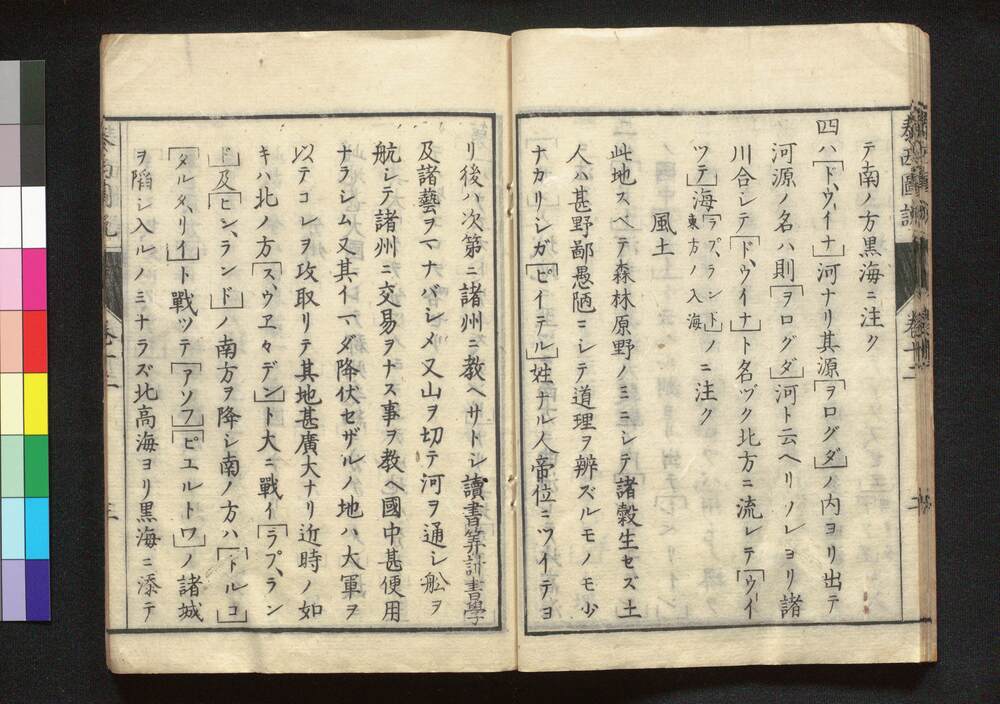 泰西圖説
卷十二
テ南ノ方黒海ニ注ク
四ハ「ドウイナ」河ナリ其源「ヲロクダ」ノ内ヨリ出テ
河源ノ名ハ則「ヲログダ」河ト云ヘリソレヨリ諸
川合シテ「ドウイナ」ト名ヅク北方ニ流レテ「ウイ
ツテ」海「ラプランド」ノ東方ノ入海ニ注ク
風土
此地スベテ森林原野ノミニシテ諸穀生セズ土
人ハ甚野鄙愚陋ニシテ道理ヲ辨ズルモノモ少
ナカリシガ「ピイテル」姓ナル人帝位ニツイテヨ
リ後ハ次第ニ諸州ニ教ヘサトシ讀書算計書學
及諸藝ヲマナバシメ又山ヲ切テ河ヲ通シ舩ヲ
航シテ諸州ニ交易ヲナス事ヲ教ヘ國中甚便用
ナラシム又其イマダ降伏セザルノ地ハ大軍ヲ
以テコレヲ攻取リテ其地甚廣大ナリ近時ノ如
キハ北ノ方「スウヱヽデン」ト大ニ戰イ「ラプラン
ド」及「ヒンランド」ノ南方ヲ降シ南ノ方ハ「トルコ
「タルタリイ」ト戰ツテ「アソフ」「ピエルトワ」ノ諸城
ヲ陷シ入ルノミナラズ北高海ヨリ黒海ニ添テ